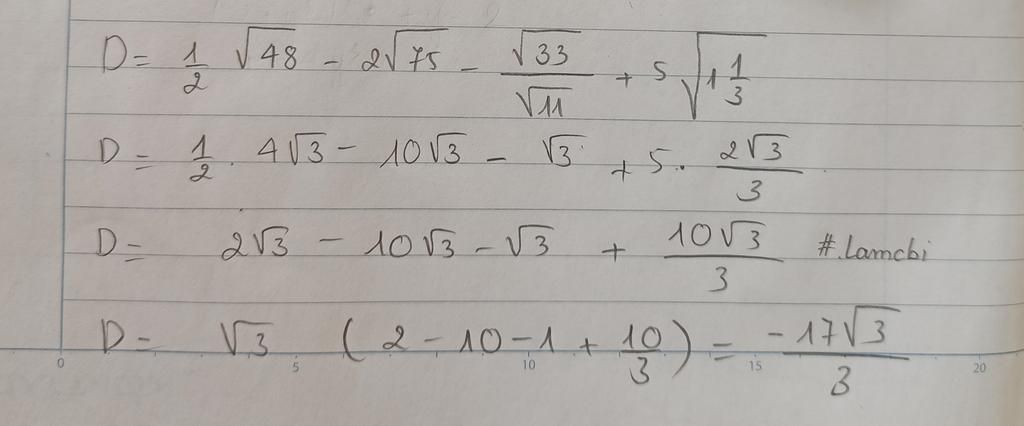 D = 1/2 √48 - 2√75 - √33/√11 + 5 √(1 1/3)
D = 1/2 . 4√3 - 10√3 - √3 + 5 . 2√3/3
D = 2√3 - 10√3 - √3 + 10√3/3 #.Lamcbi
D = √3 (2 - 10 - 1 + 10/3) = -17√3/3
0 5 10 15 20